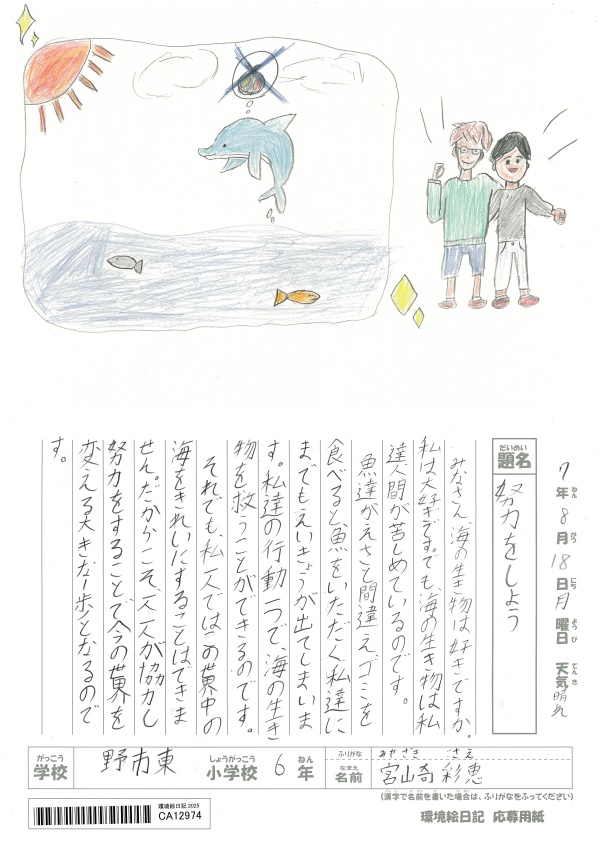 7年 8月 18日 月曜日 天気 晴れ
ねん がつ にち ようび てんき
だいめい
題名 努力をしよう
みなさん、海の生き物は好きですか。
私は大好きです。でも、海の生き物は私
達人間が苦しめているのです。
魚達がえさと間違え、ゴミを
食べると魚をいただく私達に
までもえいきょうが出てしまいま
す。私達の行動一つで、海の生き
物を救うことができるのです。
それでも、私一人ではこの世界中の
海をきれいにすることはできま
せん。だからこそ、一人一人が協力し
努力をすることで今の世界を
変える大きな一歩となるので
す。
がっこう しょうがっこう ねん
学校 野市東 小学校 6年
ふりがな みやざき さえ
なまえ
名前 宮崎 彩恵
(漢字で名前を書いた場合は、ふりがなをふってください)
環境絵日記 応募用紙
環境絵日記 2025
CA12974